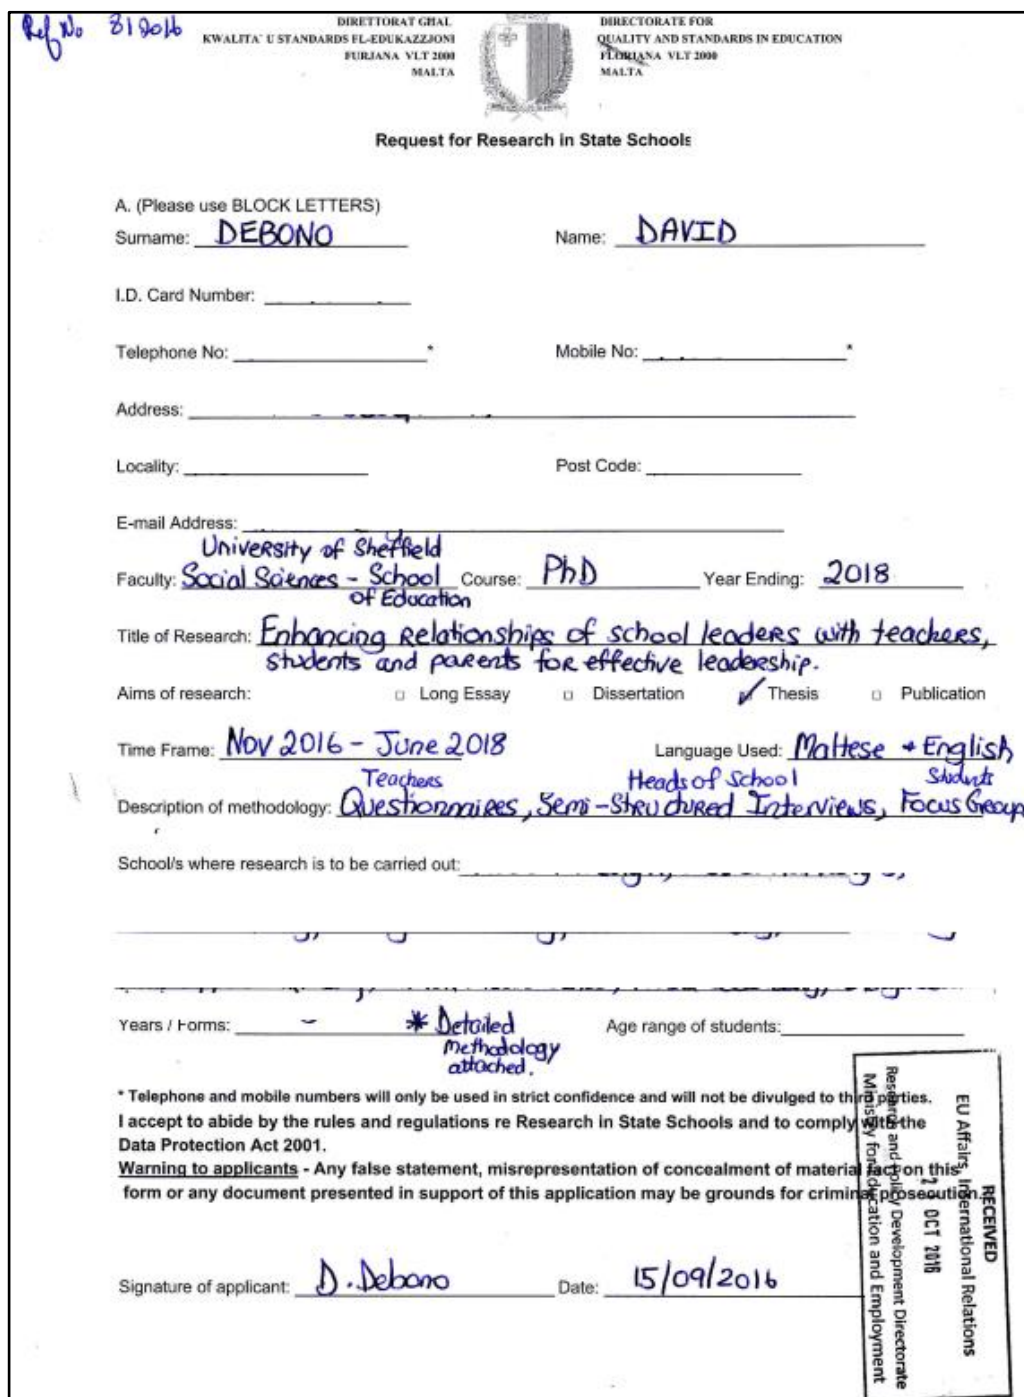 Ref No 81 2016
DIRETTORAT GĦAL
KWALITA` U STANDARDS FL-EDUKAZZJONI
FURJANA VLT 2000
MALTA
DIRECTORATE FOR
QUALITY AND STANDARDS IN EDUCATION
FLORIANA VLT 2000
MALTA
Request for Research in State Schools
A. (Please use BLOCK LETTERS)
Surname: DEBONO Name: DAVID
I.D. Card Number:
Telephone No: * Mobile No: *
Address:
Locality: Post Code:
E-mail Address:
University of Sheffield
Faculty: Social Sciences - School Course: PhD Year Ending: 2018
of Education
Title of Research: Enhancing Relationships of school leaders with teachers,
students and parents for effective leadership.
Aims of research: Long Essay Dissertation ✓ Thesis Publication
Time Frame: Nov 2016 - June 2018 Language Used: Maltese + English
Teachers Heads of School Students
Description of methodology: Questionnaires, Semi-Structured Interviews, Focus Group
School/s where research is to be carried out:
Years / Forms: * Detailed Age range of students:
methodology
attached.
* Telephone and mobile numbers will only be used in strict confidence and will not be divulged to third parties.
I accept to abide by the rules and regulations re Research in State Schools and to comply with the
Data Protection Act 2001.
Warning to applicants - Any false statement, misrepresentation of concealment of material fact on this
form or any document presented in support of this application may be grounds for criminal prosecution.
Signature of applicant: D. Debono Date: 15/09/2016
RECEIVED
EU Affairs, International Relations
OCT 2016
Research and Policy Development Directorate
Ministry for Education and Employment